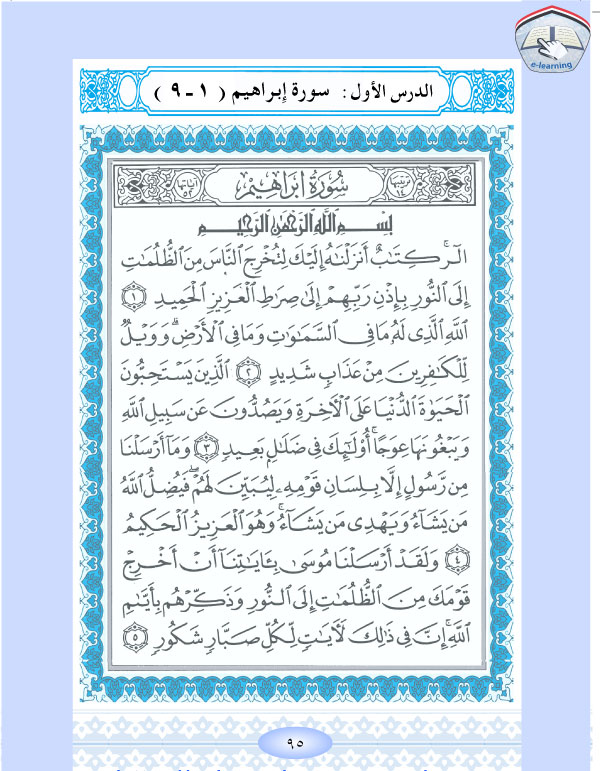 e-learning
الدرس الأول: سورة إبراهيم ( ١ - ٩ )
ترتيبها ١٤ سُورَةُ إِبْرَاهِيمَ آياتها ٥٢
بِسْمِ اللَّهِ الرَّحْمَٰنِ الرَّحِيمِ
الٓرۚ كِتَابٌ أَنزَلْنَٰهُ إِلَيْكَ لِتُخْرِجَ النَّاسَ مِنَ الظُّلُمَاتِ
إِلَى النُّورِ بِإِذْنِ رَبِّهِمْ إِلَىٰ صِرَٰطِ الْعَزِيزِ الْحَمِيدِ ١
اللَّهِ الَّذِى لَهُ مَا فِى السَّمَٰوَٰتِ وَمَا فِى الْأَرْضِۗ وَوَيْلٌ
لِّلْكَٰفِرِينَ مِنْ عَذَابٍ شَدِيدٍ ٢ الَّذِينَ يَسْتَحِبُّونَ
الْحَيَوٰةَ الدُّنْيَا عَلَى الْآخِرَةِ وَيَصُدُّونَ عَن سَبِيلِ اللَّهِ
وَيَبْغُونَهَا عِوَجًاۚ أُوْلَٰٓئِكَ فِى ضَلَٰلٍ بَعِيدٍ ٣ وَمَآ أَرْسَلْنَا
مِن رَّسُولٍ إِلَّا بِلِسَانِ قَوْمِهِۦ لِيُبَيِّنَ لَهُمْۖ فَيُضِلُّ اللَّهُ
مَن يَشَآءُ وَيَهْدِى مَن يَشَآءُۚ وَهُوَ الْعَزِيزُ الْحَكِيمُ
٤ وَلَقَدْ أَرْسَلْنَا مُوسَىٰ بِـَٔايَٰتِنَآ أَنْ أَخْرِجْ
قَوْمَكَ مِنَ الظُّلُمَاتِ إِلَى النُّورِ وَذَكِّرْهُم بِأَيَّىٰمِ
اللَّهِۚ إِنَّ فِى ذَٰلِكَ لَآيَاتٍ لِّكُلِّ صَبَّارٍ شَكُورٍ ٥
٩٥